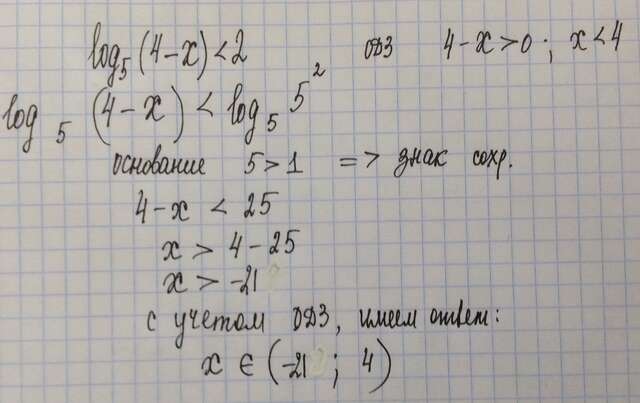 log₅(4-x)<2 ОДЗ 4-x>0; x<4
log₅(4-x)<log₅5²
основание 5>1 => знак сохр.
4-x < 25
x > 4-25
x > -21
с учетом ОДЗ, имеем ответ:
x ∈ (-21; 4)